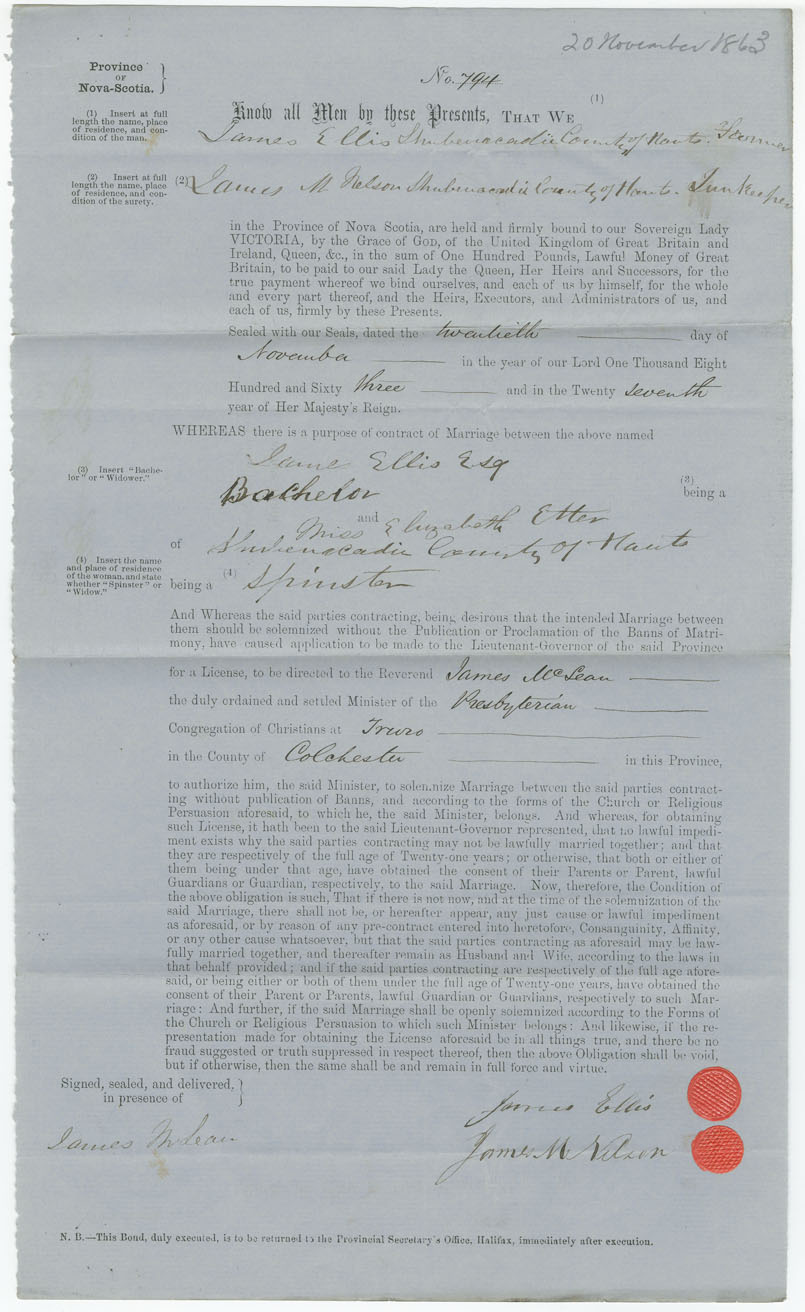 20 November 1863
Province
OF
Nova-Scotia.
No. 794
(1)
(1) Insert at full
length the name, place
of residence, and con-
dition of the man.
Know all Men by these Presents, THAT WE
James Ellis Shubenacadie County of Hants. Farmer
(2) Insert at full
length the name, place
of residence, and con-
dition of the surety.
(2) James M Nelson Shubenacadie County of Hants. Innkeeper
in the Province of Nova Scotia, are held and firmly bound to our Sovereign Lady
VICTORIA, by the Grace of GOD, of the United Kingdom of Great Britain and
Ireland, Queen, &c., in the sum of One Hundred Pounds, Lawful Money of Great
Britain, to be paid to our said Lady the Queen, Her Heirs and Successors, for the
true payment whereof we bind ourselves, and each of us by himself, for the whole
and every part thereof, and the Heirs, Executors, and Administrators of us, and
each of us, firmly by these Presents.
Sealed with our Seals, dated the twentieth day of
November in the year of our Lord One Thousand Eight
Hundred and Sixty three and in the Twenty seventh
year of Her Majesty's Reign.
WHEREAS there is a purpose of contract of Marriage between the above named
James Ellis Esq
(3) Insert "Bache-
lor" or "Widower."
(3)
Bachelor being a
and Miss Elizabeth Etter
of Shubenacadie County of Hants
(4) Insert the name
and place of residence
of the woman, and state
whether "Spinster" or
"Widow."
being a (4) Spinster
And Whereas the said parties contracting, being desirous that the intended Marriage between
them should be solemnized without the Publication or Proclamation of the Banns of Matri-
mony, have caused application to be made to the Lieutenant-Governor of the said Province
for a License, to be directed to the Reverend James McLean
the duly ordained and settled Minister of the Presbyterian
Congregation of Christians at Truro
in the County of Colchester in this Province,
to authorize him, the said Minister, to solemnize Marriage between the said parties contract-
ing without publication of Banns, and according to the forms of the Church or Religious
Persuasion aforesaid, to which he, the said Minister, belongs. And whereas, for obtaining
such License, it hath been to the said Lieutenant-Governor represented, that no lawful impedi-
ment exists why the said parties contracting may not be lawfully married together; and that
they are respectively of the full age of Twenty-one years; or otherwise, that both or either of
them being under that age, have obtained the consent of their Parents or Parent, lawful
Guardians or Guardian, respectively, to the said Marriage. Now, therefore, the Condition of
the above obligation is such, That if there is not now, and at the time of the solemnization of the
said Marriage, there shall not be, or hereafter appear, any just cause or lawful impediment
as aforesaid, or by reason of any pre-contract entered into heretofore, Consanguinity, Affinity,
or any other cause whatsoever, but that the said parties contracting as aforesaid may be law-
fully married together, and thereafter remain as Husband and Wife, according to the laws in
that behalf provided; and if the said parties contracting are respectively of the full age afore-
said, or being either or both of them under the full age of Twenty-one years, have obtained the
consent of their Parent or Parents, lawful Guardian or Guardians, respectively to such Mar-
riage: And further, if the said Marriage shall be openly solemnized according to the Forms of
the Church or Religious Persuasion to which such Minister belongs: And likewise, if the re-
presentation made for obtaining the License aforesaid be in all things true, and there be no
fraud suggested or truth suppressed in respect thereof, then the above Obligation shall be void,
but if otherwise, then the same shall be and remain in full force and virtue.
Signed, sealed, and delivered,
in presence of
James Ellis
James McLean
James M Nelson
N. B.—This Bond, duly executed, is to be returned to the Provincial Secretary's Office, Halifax, immediately after execution.